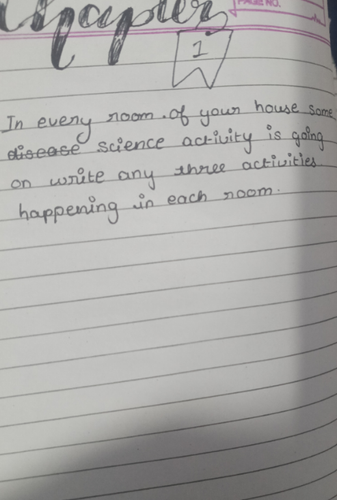 Chapter
PAGE NO.
1
In every room of your house some
disease science activity is going
on write any three activities
happening in each room.